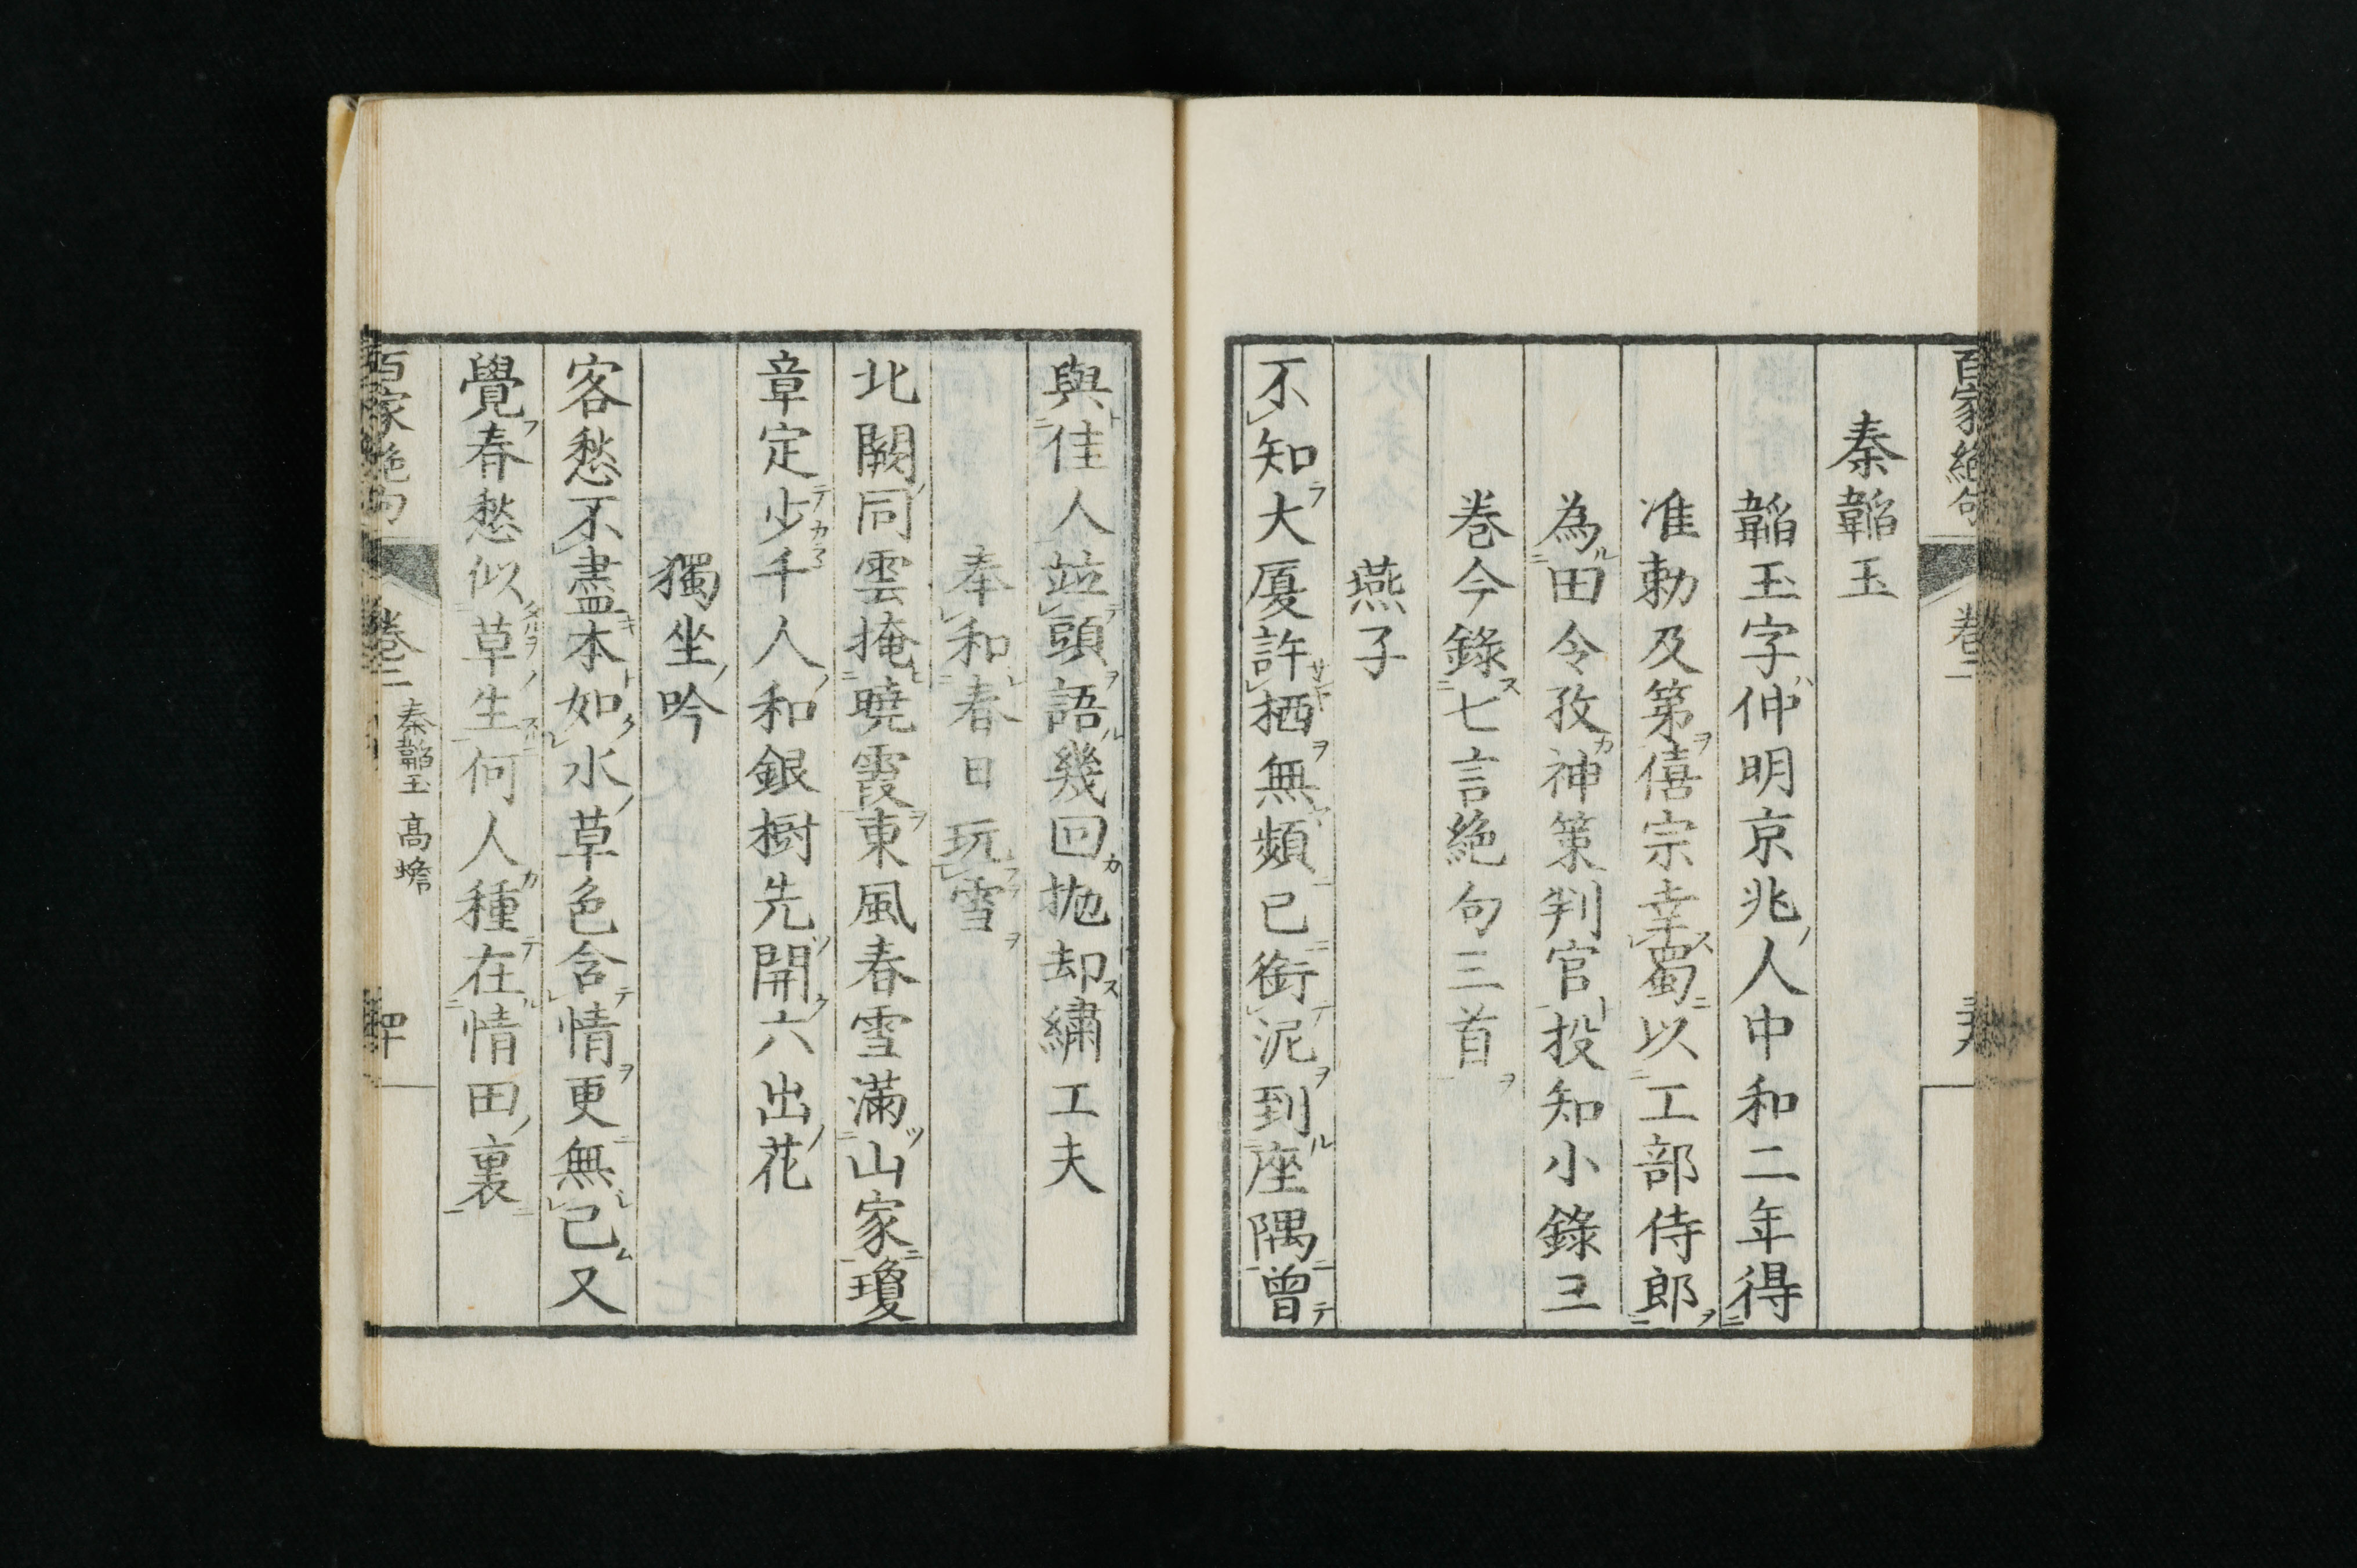 百家絶句 卷二
秦韜玉
韜玉字仲明京兆人中和二年得
准勅及第僖宗幸蜀以工部侍郎
為田令孜神策判官投知小錄三
卷今錄七言絶句三首
燕子
不知大厦許栖無頻已銜泥到座隅曾
與佳人竝頭語幾回抛却繡工夫
奉和春日玩雪
北闕同雲掩曉霞東風春雪滿山家瓊
章定少千人和銀樹先開六出花
獨坐吟
客愁不盡本如水草色含情更無已又
覺春愁似草生何人種在情田裏
百家絶句 卷二 秦韜玉 高蟾 四十